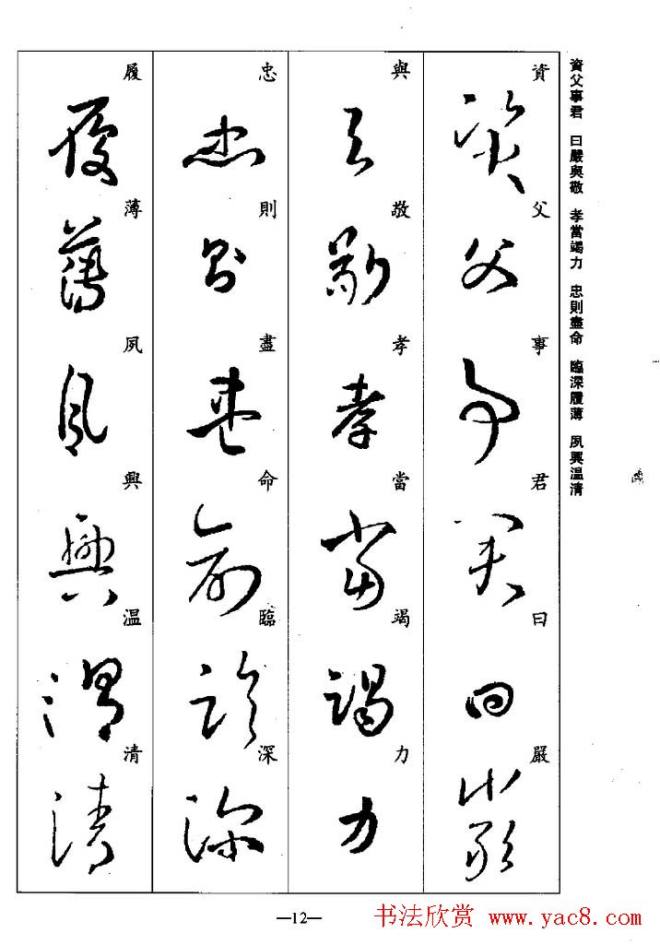 資父事君 曰嚴與敬 孝當竭力 忠則盡命 臨深履薄 夙興温清
資父事君曰嚴
與敬孝當竭力
忠則盡命臨深
履薄夙興温清
—12—
书法欣赏 www.yac8.com